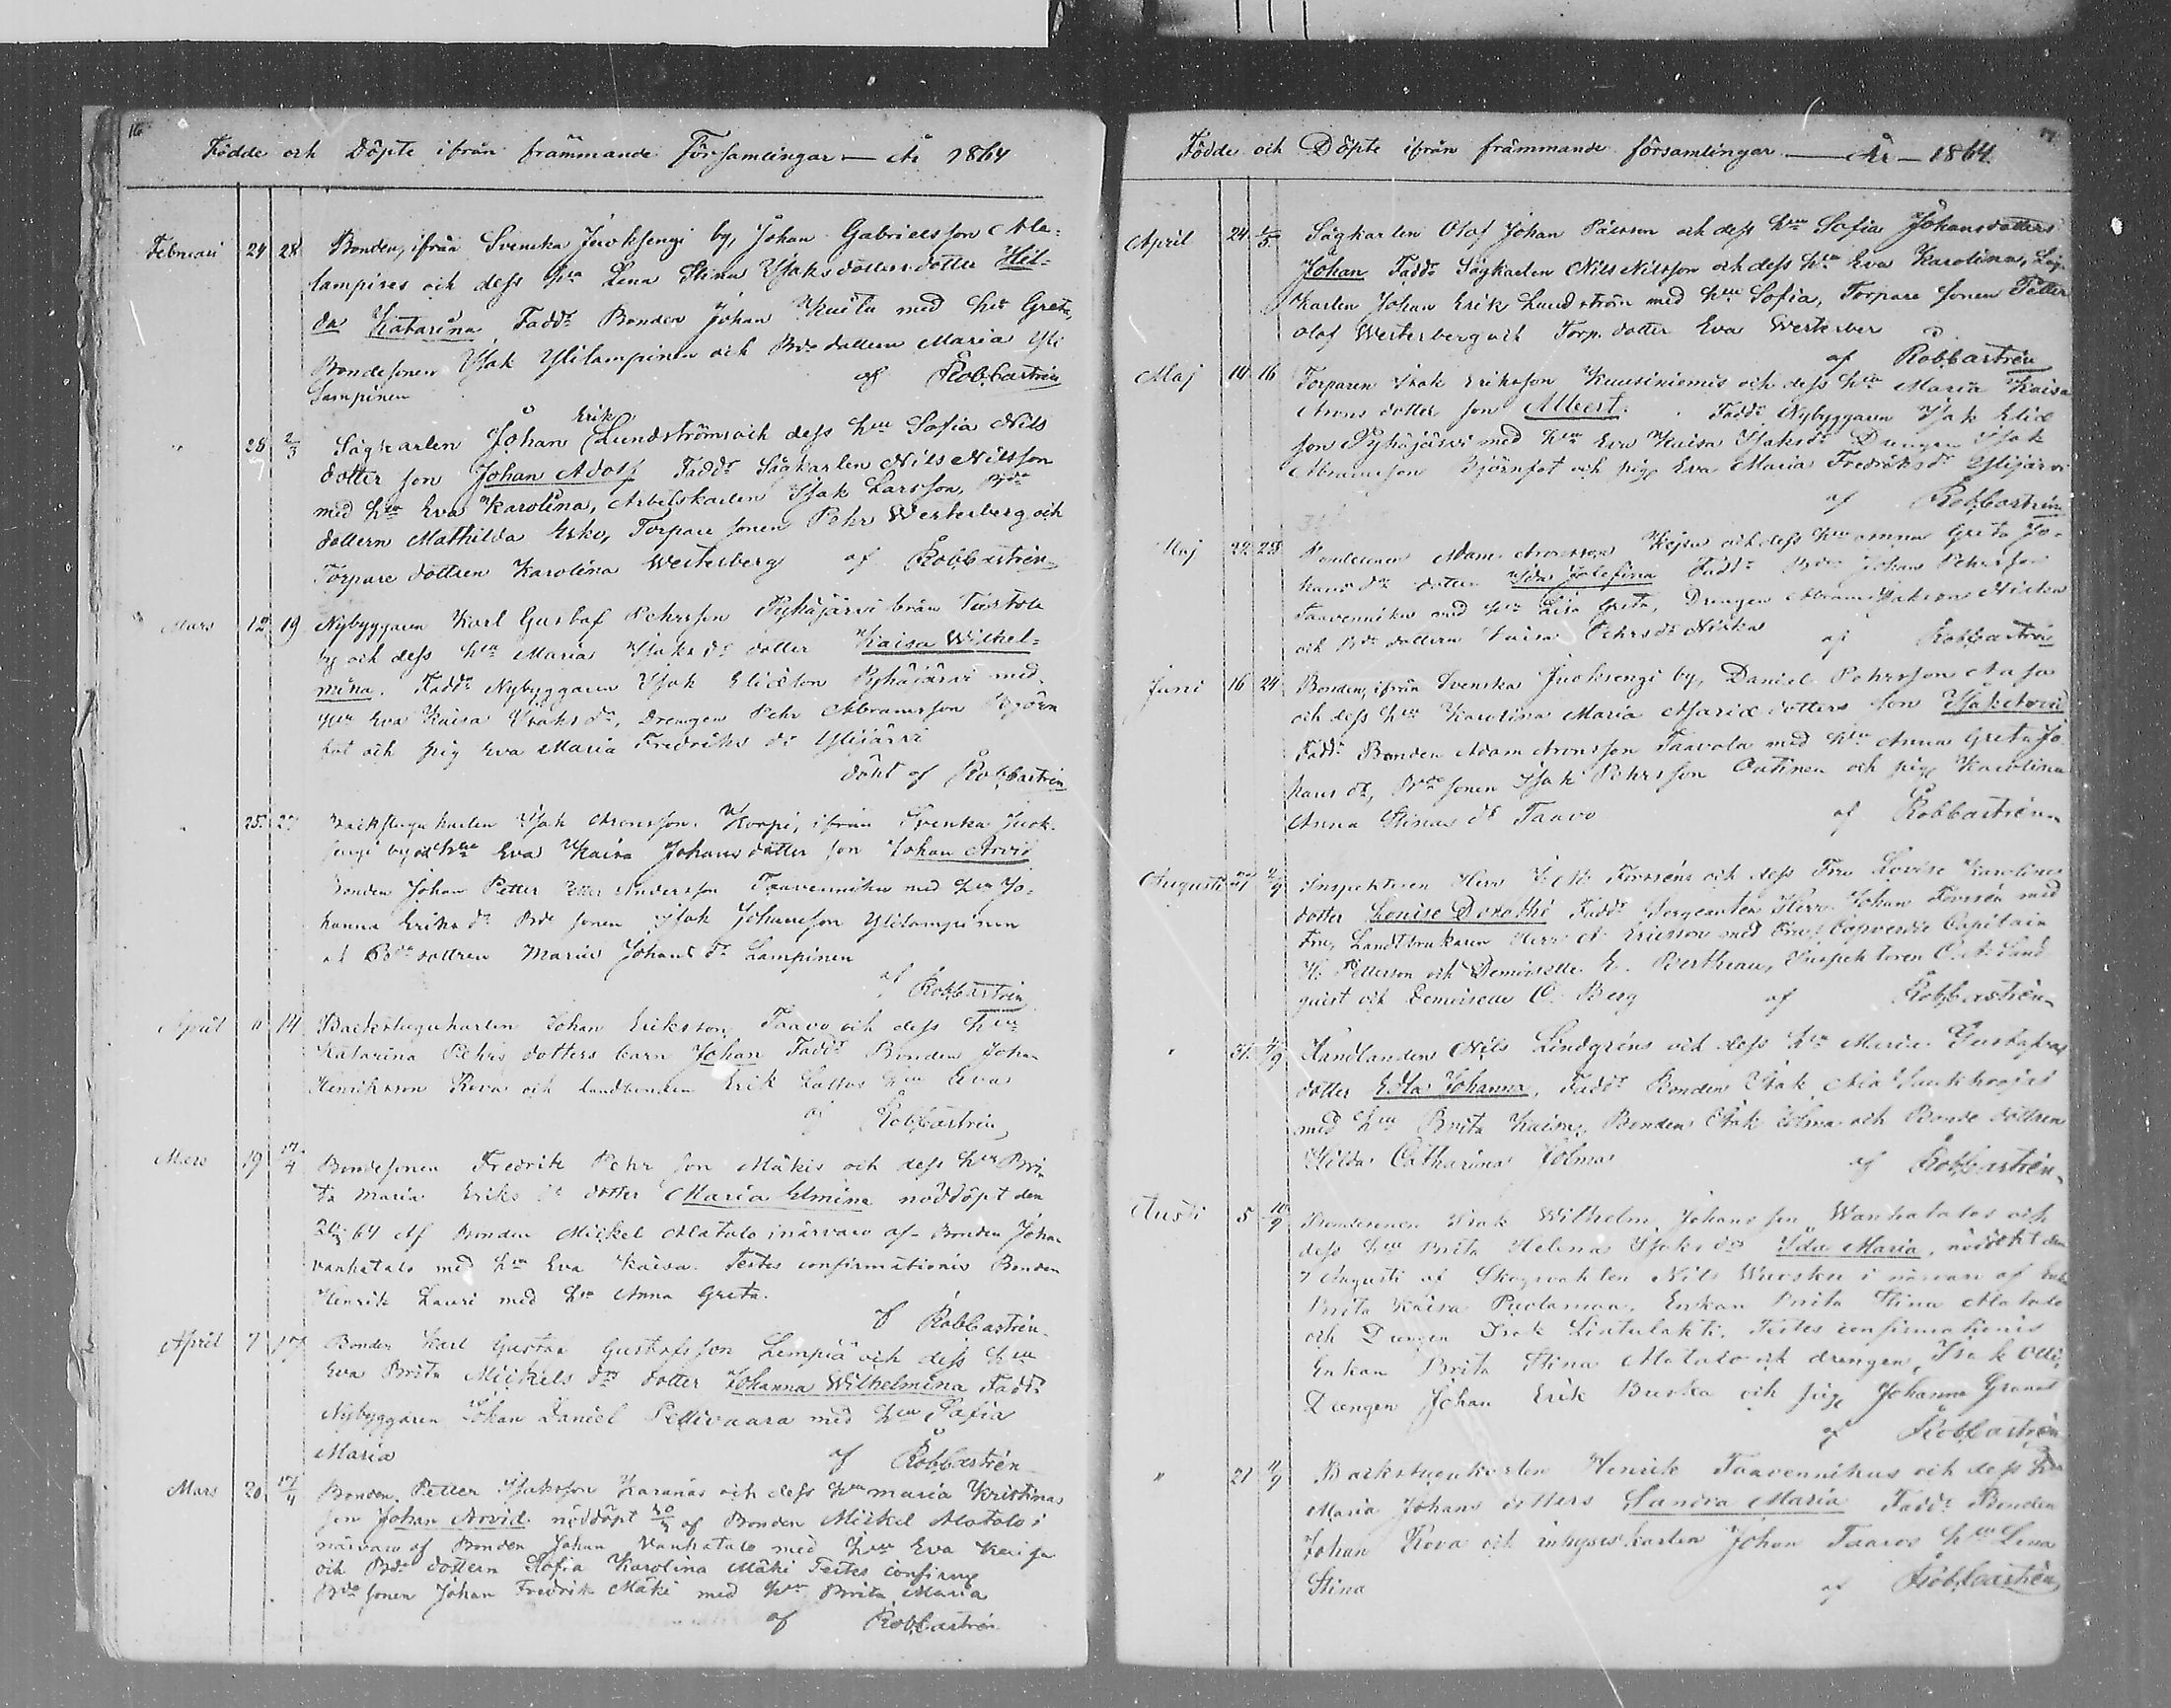 16
Födde och Döpte ifrån främmande Församlingar — År 1864
Februari 24 28 Bonden, ifrån Svenska Juoksengi by, Johan Gabrielsson Ala-
lampises och dess hu Lena Stina Isaks dotters dotter Hil-
da Katarina Faddr Bonden Johan Kuitu med hu Greta,
Bondesonen Isak Ylilampinen och Bdedottern Maria Yli
Lampinen af RobCastrén
" 28 2/3 Sågkarlen Johan Erik Lundströms och dess hu Sofia Nils
dotter son Johan Adolf Faddr Sågkarlen Nils Nilsson
med hu Eva Karolina, Arbetskarlen Isak Larsson, Bde
dottern Mathilda Esko, Torpare sonen Pehr Westerberg och
Torpare dottren Karolina Westerberg af RobCastrén
Mars 12 19 Nybyggaren Karl Gustaf Pehrsson Pyhäjärvi från
by och dess hu Maria Isaks dr dotter Kaisa Wilhel-
mina. Faddr Nybyggaren Isak Elieson Pyhäjärvi med
hu Eva Kaisa Isaks dr, Drengen Pehr Abramsson Björn
fot och pig Eva Maria Fredriks dr Ylijärvi
döpt af RobCastrén
" 25 27 Backstugukarlen Isak Aronsson Korpi, ifrån Svenska Juok-
sengi by och hu Eva Kaisa Johans dotter son Johan Arvid
Bonden Johan Petter Andersson Taavenniku med hu Jo-
hanna Eriks dr Bde sonen Isak Johansson Ylilampinen
och Bde dottren Maria Johans dr Lampinen
af RobCastrén
April 11 14 Backstugukarlen Johan Eriksson Taavo och dess hu
Katarina Pehrs dotters barn Johan Faddr Bonden Johan
Henriksson Kova och landbonden Erik Lassos hu Eva
af RobCastrén
Mars 19 17/4 Bondesonen Fredrik Pehr son Mäkis och dess hu Bri
ta Maria Eriks dr dotter Maria Elmina nöddöpt den
64 Af Bonden Mickel Alatalo i närvaro af Bonden Johan
Vanhatalo med hu Eva Kaisa. Testes confirmationis Bonden
Henrik Lauri med hu Anna Greta.
af RobCastrén
April 7 17 Bonden Karl Gustaf Gustafsson Lempiä och dess hu
Eva Brita Mickels dr dotter Johanna Wilhelmina Faddr
Nybyggaren Johan Daniel Pellivaara med hu Sofia
Maria af RobCastrén
Mars 20 17/4 Bonden Petter Isaksson Karanäs och dess hu Maria Kristinas
son Johan Arvid nöddöpt af Bonden Mickel Alatalo i
närvaro af Bonden Johan Vanhatalo med hu Eva Kaisa
och Bde dottern Sofia Karolina Mäki Testes confirma
Bde sonen Johan Fredrik Mäki med hu Brita Maria
af RobCastrén
17
Födde och Döpte ifrån främmande församlingar — År — 1864
April 24 1/5 Sågkarlen Olof Johan och dess hu Sofia Johansdotters
Johan Faddr Sågkarlen Nils Nilsson och dess hu Eva Karolina, Såg-
karlen Johan Erik Lundström med hu Sofia, Torpare sonen Petter
Olof Westerberg och Torp. dotter Eva Westerber
af RobCastrén
Maj 14 16 Torparen Isak Eriksson Kuusiniemis och dess hu Maria Kaisa
Arons dotter son Albert. Faddr Nybyggaren Isak Elie
son Pyhäjärvi med hu Eva Kaisa Isaksdr Drengen Isak
Abramsson Björnfot och pig Eva Maria Fredriksdr Ylijärvi
af RobCastrén
Maj 22 25 Bondesonen Adam Aronsson och dess hu Anna Greta Jo-
hans dr dotter Ida Josefina Faddr Bden Johan Pehrsson
Taavenniku med hu Lisa Greta, Drengen Abram Isaksson Niska
och Bde dottern Kaisa Pehrsdr Niska af RobCastrén
Juni 16 24 Bonden, ifrån Svenska Juoksengi by, Daniel Pehrsson
och dess hu Karolina Maria dotters son Isak Arvid
Faddr Bonden Adam Aronsson Taavola med hu Anna Greta Jo
hans dr, Bde sonen Isak Pehrsson Outinen och pig Karolina
Anna Stina dr Taavo af RobCastrén
Augusti 2/9 Inspektoren Herr Forsséns och dess Fru Lovise Karolines
dotter Louise Dorothé Faddr Sergeanten Herr Johan Forssén med
Fru, Landtbrukaren Herr A. Ericsson med Fru, Capverdie Capitain
H. Petterson och Demoiselle E. Bertheau, Inspektoren C. A. Land
quist och Demoiselle C. Berg af RobCastrén
" 31 4/9 Handlanden Nils Lindgréns och dess hu Maria Gustafvas
dotter Edla Johanna, Faddr Bonden Isak
med hu Brita Kaisa, Bonden Isak Kolma och Bonde dottren
Hilda Catharina Kolmas af RobCastrén
Austi 5 10/9 Bondesonen Isak Wilhelm Johans son Wanhatalos och
dess hu Brita Helena Isaks dr Ida Maria, nöddöpt den
7 Augusti af Skogvakten Nils i närvaro af Enk
Brita Kaisa, Enkan Brita Stina Alatalo
och Drengen Isak Lintulahti. Testes confirmationis
Enkan Brita Stina Alatalo och drengen Isak Olli,
Drengen Johan Erik Buska och pig Johanna Granat
af RobCastrén
" 21 11/9 Backstugukarlen Henrik Taavennikus och dess hu
Maria Johans dotters Sandra Maria Faddr Bonden
Johan Kova och inhyseskarlen Johan Taavos hu Lena
Stina af RobCastrén